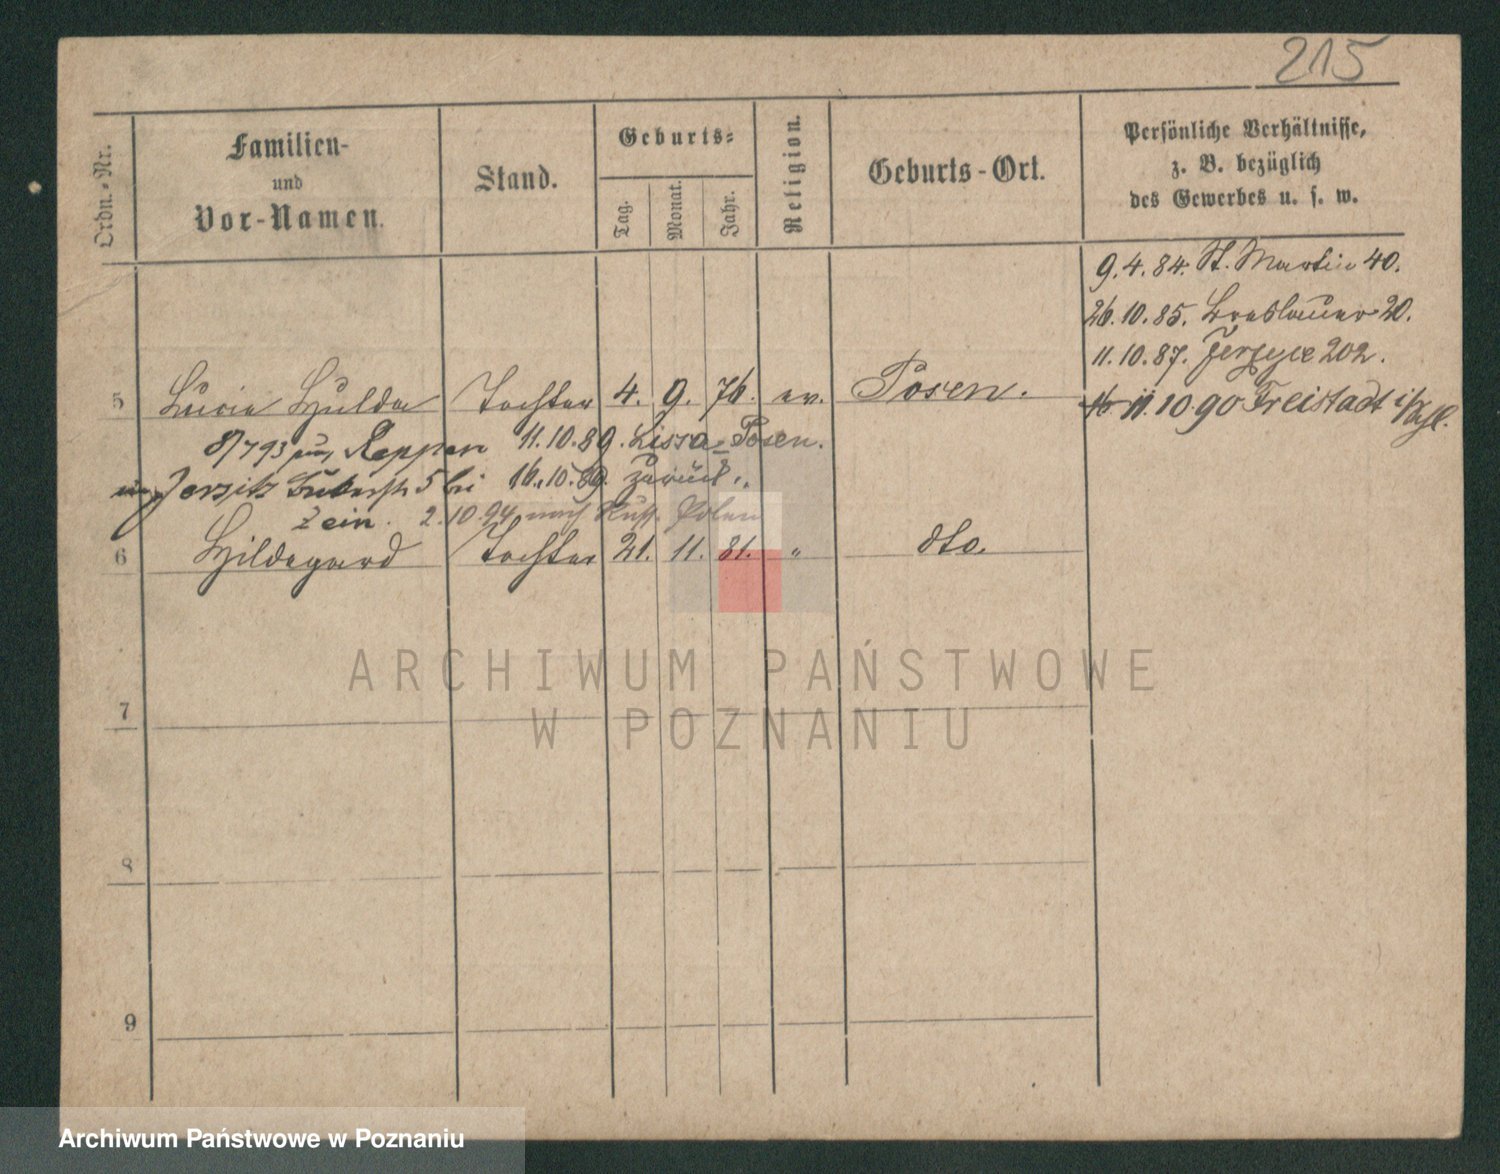 215
Ordn.-Nr.
Familien-
und
Vor-Namen.
Stand.
Geburts-
Tag.
Monat.
Jahr.
Religion.
Geburts-Ort.
Persönliche Verhältnisse,
z. B. bezüglich
des Gewerbes u. s. w.
9.4.84. St. Martin 40.
26.10.85. Breslauer 20.
11.10.87. Jerzyce 202.
11.10.90 Freistadt i/Schl.
5 Lucie Hulda Tochter 4. 9. 76. ev. Posen.
8/7 93 Reppen 11.10.89. Lissa-Posen.
Jersitz 5 bei 16.10.89. zurück.
Zein. 2.10.94 nach Russ. Polen
6 Hildegard Tochter 21. 11. 81. " dto.
7
8
9
ARCHIWUM PAŃSTWOWE
W POZNANIU
Archiwum Państwowe w Poznaniu